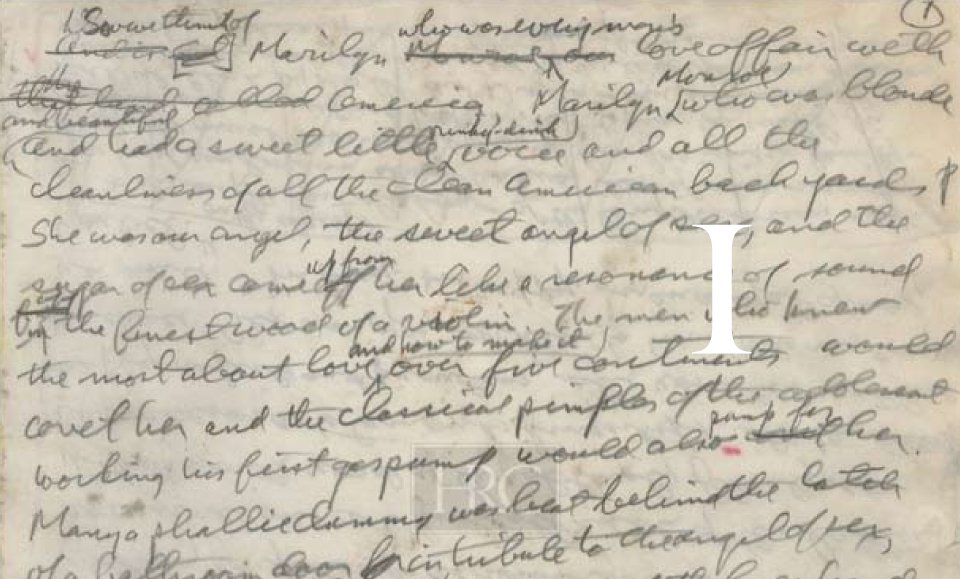 So we think of who was every man's
Marilyn love affair with
America, Marilyn Monroe who was blonde
and beautiful
and had a sweet little rinky-dink voice and all the
cleanliness of all the clean American backyards
She was our angel, the sweet angel of sex, and the
sugar of sex came up from her like a resonance of sound
in the finest wood of a violin. The men who knew
and how to make it
the most about love, over five continents would
covet her and the classical pimples of the adolescent
pump for
working his first gas pump would also her.
Many a phallic was behind the latch
of a door contribute to the angel of sex,
I
HRC
1